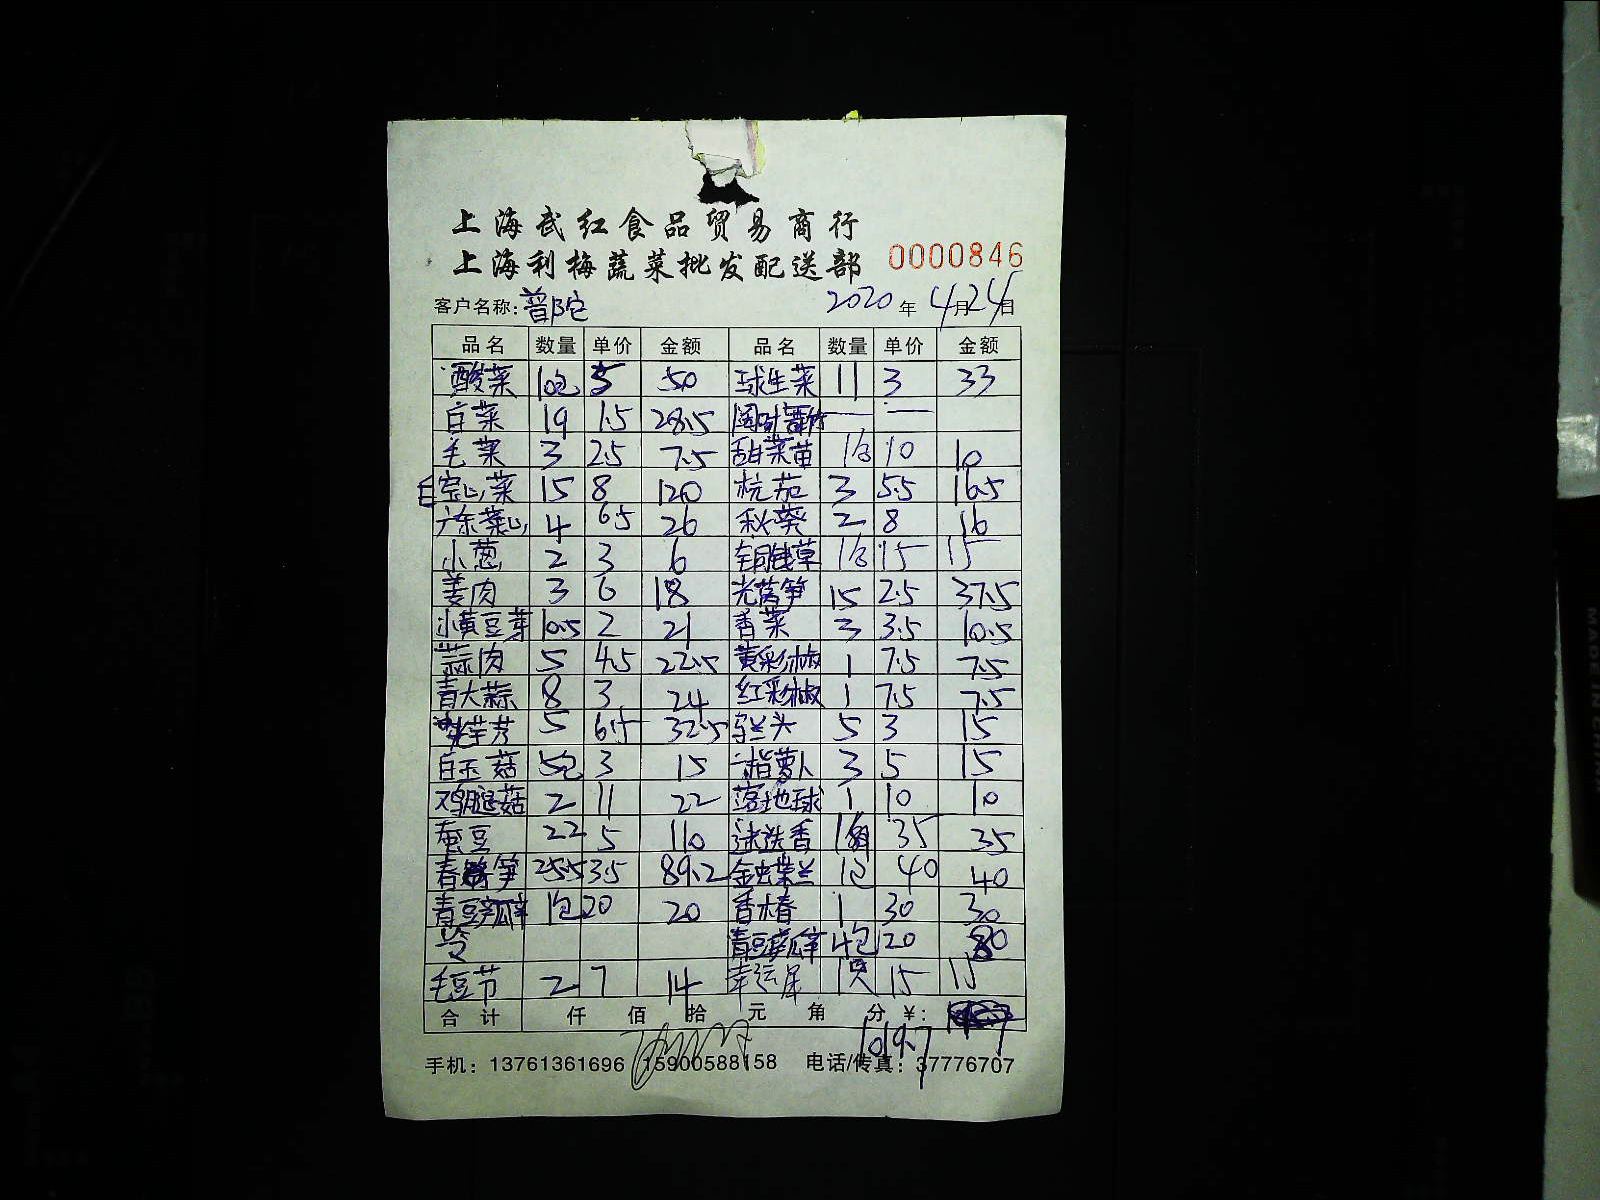 上海武红食品贸易商行
上海利梅蔬菜批发配送部 0000846
客户名称:普陀 2020年4月24日
品名 数量 单价 金额 品名 数量 单价 金额
酸菜 10包 5 50 球生菜 11 3 33
白菜 19 1.5 28.5
毛菜 3 2.5 7.5 甜菜苗 1合 10 10
白空心菜 15 8 120 杭茄 3 5.5 16.5
广东菜心 4 6.5 26 秋葵 2 8 16
小葱 2 3 6 铜钱草 1合 15 15
姜肉 3 6 18 光莴笋 15 2.5 37.5
小黄豆芽 10.5 2 21 香菜 3 3.5 10.5
蒜肉 5 4.5 22.5 黄彩椒 1 7.5 7.5
青大蒜 8 3 24 红彩椒 1 7.5 7.5
芋艿 5 6.5 32.5 兰头 5 3 15
白玉菇 5包 3 15 指萝卜 3 5 15
鸡腿菇 2 11 22 落地球 1 10 10
蚕豆 22 5 110 迷迭香 1 35 35
春笋 25.5 3.5 89.2 金虫草兰 1包 40 40
青豆瓣 1包 20 20 香椿 1 30 30
青豆 4包 20 80
毛豆节 2 7 14 幸运 1只 15 15
合计 仟 佰 拾 元 角 分 ¥:
1019.7
手机:13761361696 15900588158 电话/传真:37776707